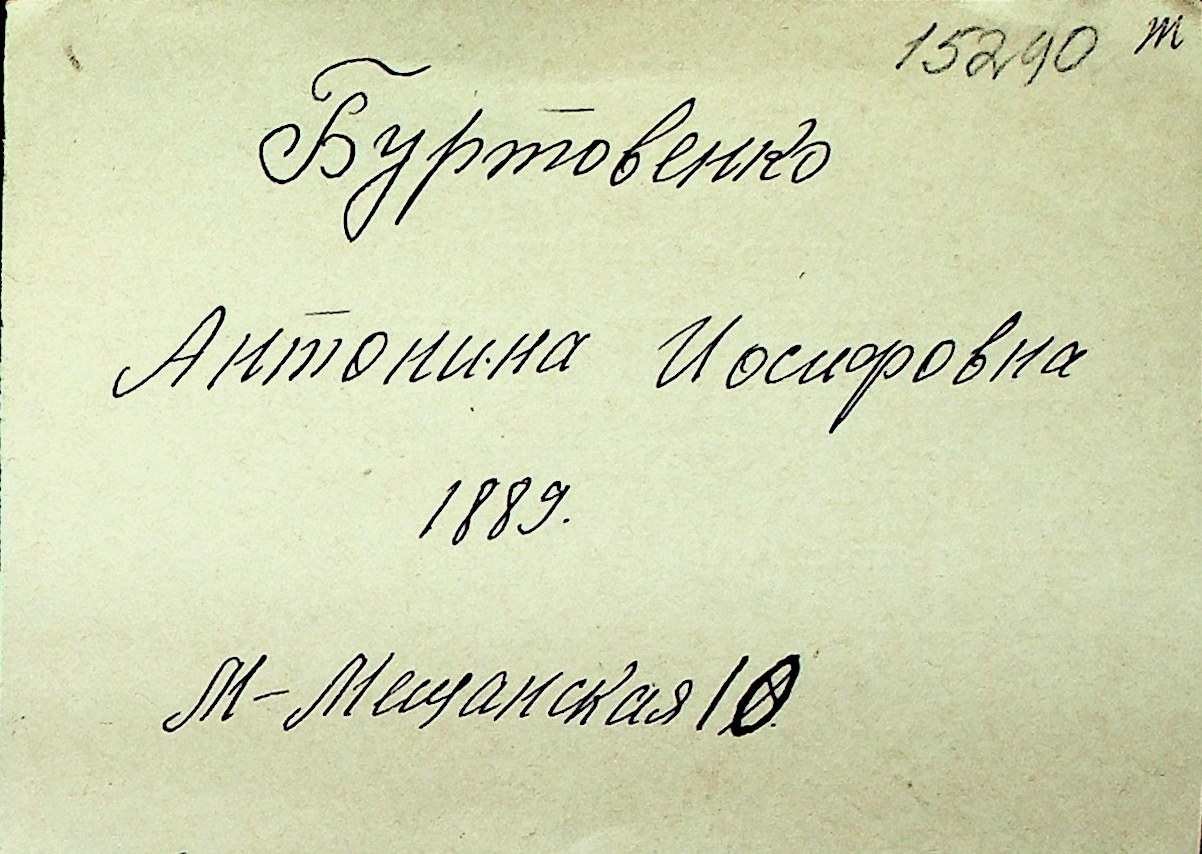 15290 т
Буртовенко
Антонина Иосифовна
1889.
М-Мещанская 10.